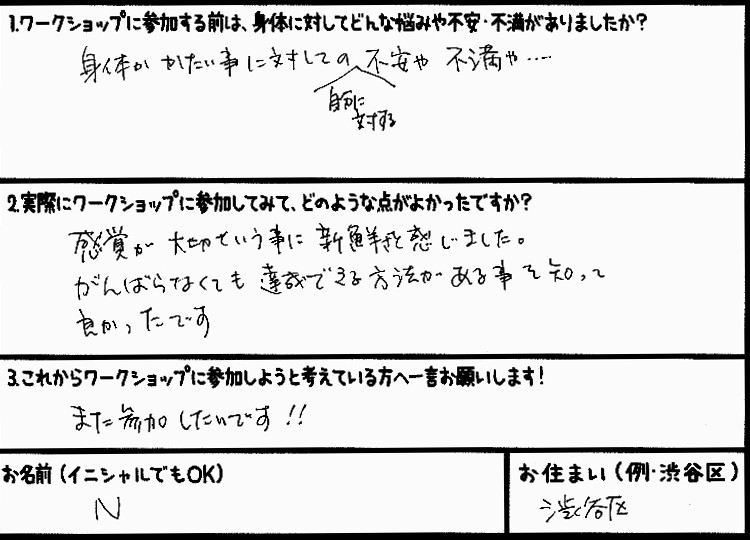 1.ワークショップに参加する前は、身体に対してどんな悩みや不安・不満がありましたか?
身体が かたい事に対しての 不安や 不満や‥‥
自分に
対する
2.実際にワークショップに参加してみて、どのような点がよかったですか?
感覚が 大切という事に 新鮮さを感じました。
がんばらなくても 達成できる方法が ある事を知って
良かったです
3.これからワークショップに参加しようと考えている方へ一言お願いします!
また参加したいです!!
お名前(イニシャルでもOK)
N
お住まい(例・渋谷区)
渋谷区